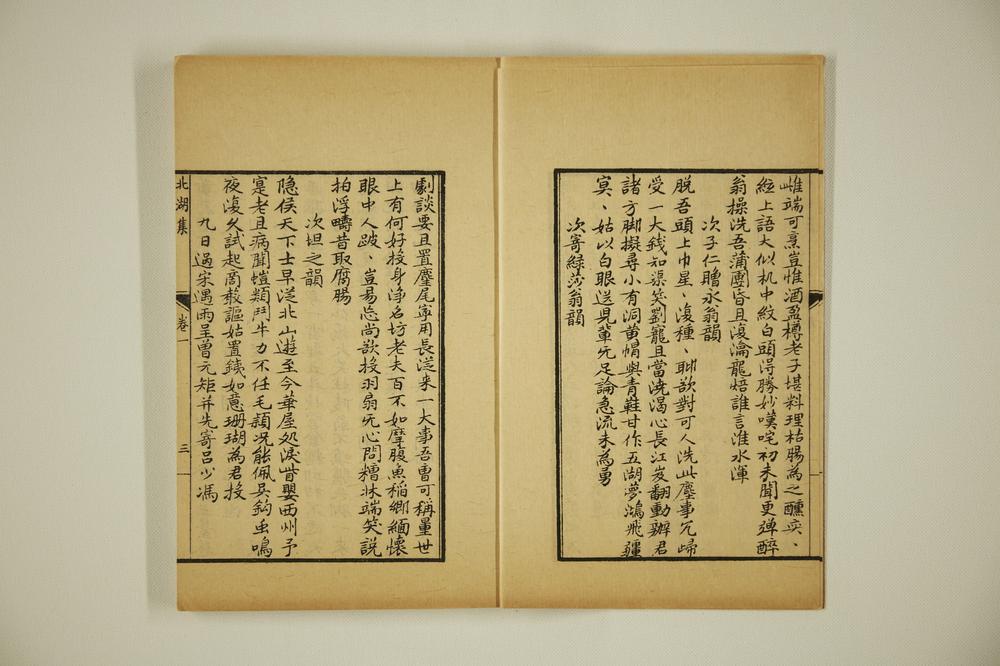 雌端可烹豈惟酒盈樽老子堪料理枯腸為之醺奕、
經上語大似机中紋白頭得勝妙嘆咤初未聞更殫醉
翁操洗吾蒲團昏且湲瀹龍焙誰言淮水渾
次子仁贍永翁韻
脫吾頭上巾星、湲種、聊欲對可人洗此塵事冗歸
受一大錢知渠笑劉寵且當澆渴心長江岌翻動辦君
諸方脚擬尋小有洞黃帽與青鞵甘作五湖夢鴻飛疆
冥、姑以白眼送兒輩旡足論急流未為勇
次寄綠莎翁韻
劇談要且置麈尾寧用長從来一大事吾曹可稱量世
上有何好投身淨名坊老夫百不如摩腹魚稻鄉緬懷
眼中人跛、豈易忘尚欲投羽扇旡心問糟牀端笑說
拍浮疇昔取腐腸
次坦之韻
隐侯天下士早從北山遊至今華屋処淚眥嬰西州予
寔老且病聞螘類鬥牛力不任毛穎况能佩吳鈎虫鳴
夜湲久試起商敲謳姑置銕如意珊瑚為君投
九日過宋遇雨呈曾元矩并先寄吕少馮
北湖集
卷一
三